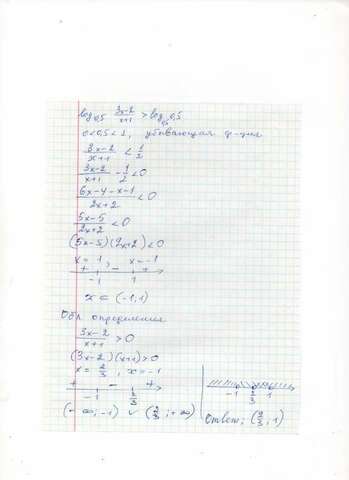 log₀,₅ (3x-2)/(x+1) > log₀,₅ 0,5
0<0,5<1, убывающая ф-ция
(3x-2)/(x+1) < 1/2
(3x-2)/(x+1) - 1/2 < 0
(6x-4-x-1)/(2x+2) < 0
(5x-5)/(2x+2) < 0
(5x-5)(2x+2)<0
x = 1, x=-1
+ - +
-1 1
x ∈ (-1,1)
Обл определения
(3x-2)/(x+1) > 0
(3x-2)(x+1)>0
x = 2/3, x=-1
+ - +
-1 2/3
(-∞;-1) ∪ (2/3;+∞)
-1 2/3 1
Ответ: (2/3; 1)